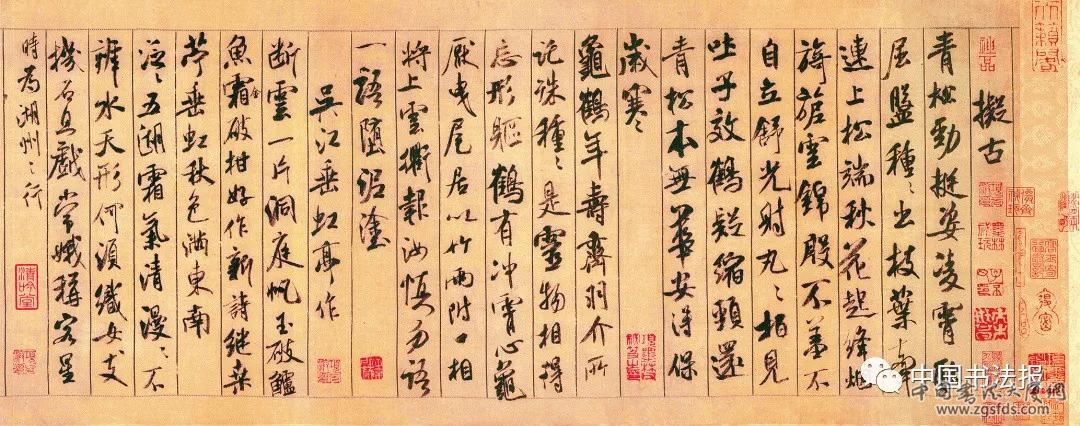 擬古
青松勁挺姿凌霄恥
屈盤種種出枝葉牽
連上松端秋花起絳烟
旖旎雲錦殷不羞不
自立舒光射丸丸柏見
吐子效鶴疑縮頸還
青松本無華安得保
歲寒
龜鶴年壽齊羽介所
託殊種種是靈物相得
忘形軀鶴有沖霄心龜
厭曳尾居以竹兩附口相
將上雲衢報汝慎勿語
一語墮泥塗
吳江垂虹亭作
斷雲一片洞庭帆玉破鱸
魚霜金破柑好作新詩繼桑
苧垂虹秋色滿東南
泛泛五湖霜氣清漫漫不
辨水天形何須織女支
機石且戲常娥稱客星
時為湖州之行
清吟堂
中国书法报
www.zgsfds.com